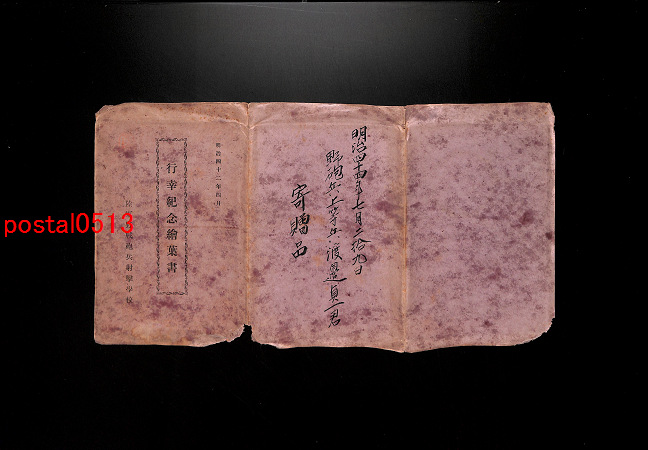 明治四十二年四月
行幸紀念繪葉書
陸軍野戰砲兵射擊學校
明治四十四年七月二拾九日
野砲兵上等兵渡邊貞一君
寄贈品
postal0513